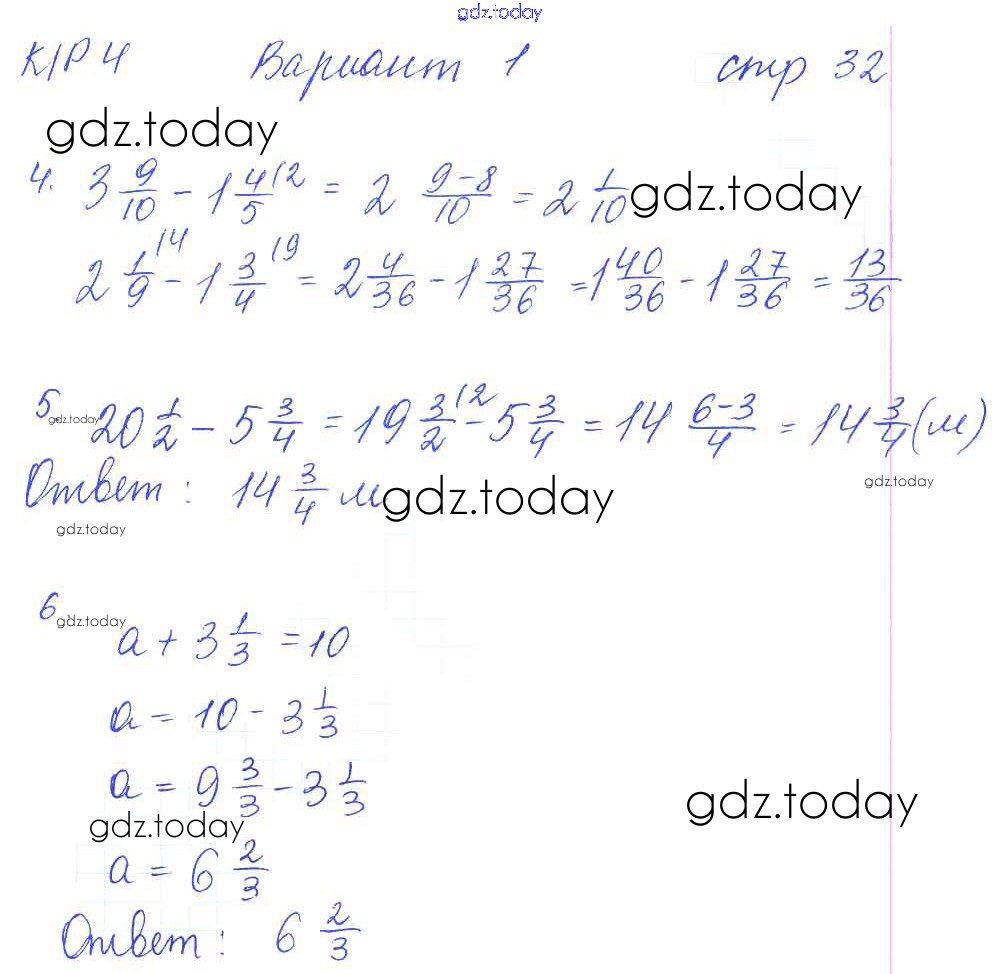 gdz.today
К/Р 4 Вариант 1 стр 32
gdz.today
4. 3 9/10 - 1 4/5 \2 = 2 (9-8)/10 = 2 1/10 gdz.today
2 1/9 \4 - 1 3/4 \9 = 2 4/36 - 1 27/36 = 1 40/36 - 1 27/36 = 13/36
5. gdz.today 20 1/2 - 5 3/4 = 19 3/2 \2 - 5 3/4 = 14 (6-3)/4 = 14 3/4 (м)
gdz.today
Ответ: 14 3/4 м gdz.today
gdz.today
6. gdz.today
a + 3 1/3 = 10
a = 10 - 3 1/3
a = 9 3/3 - 3 1/3
gdz.today gdz.today
a = 6 2/3
Ответ: 6 2/3